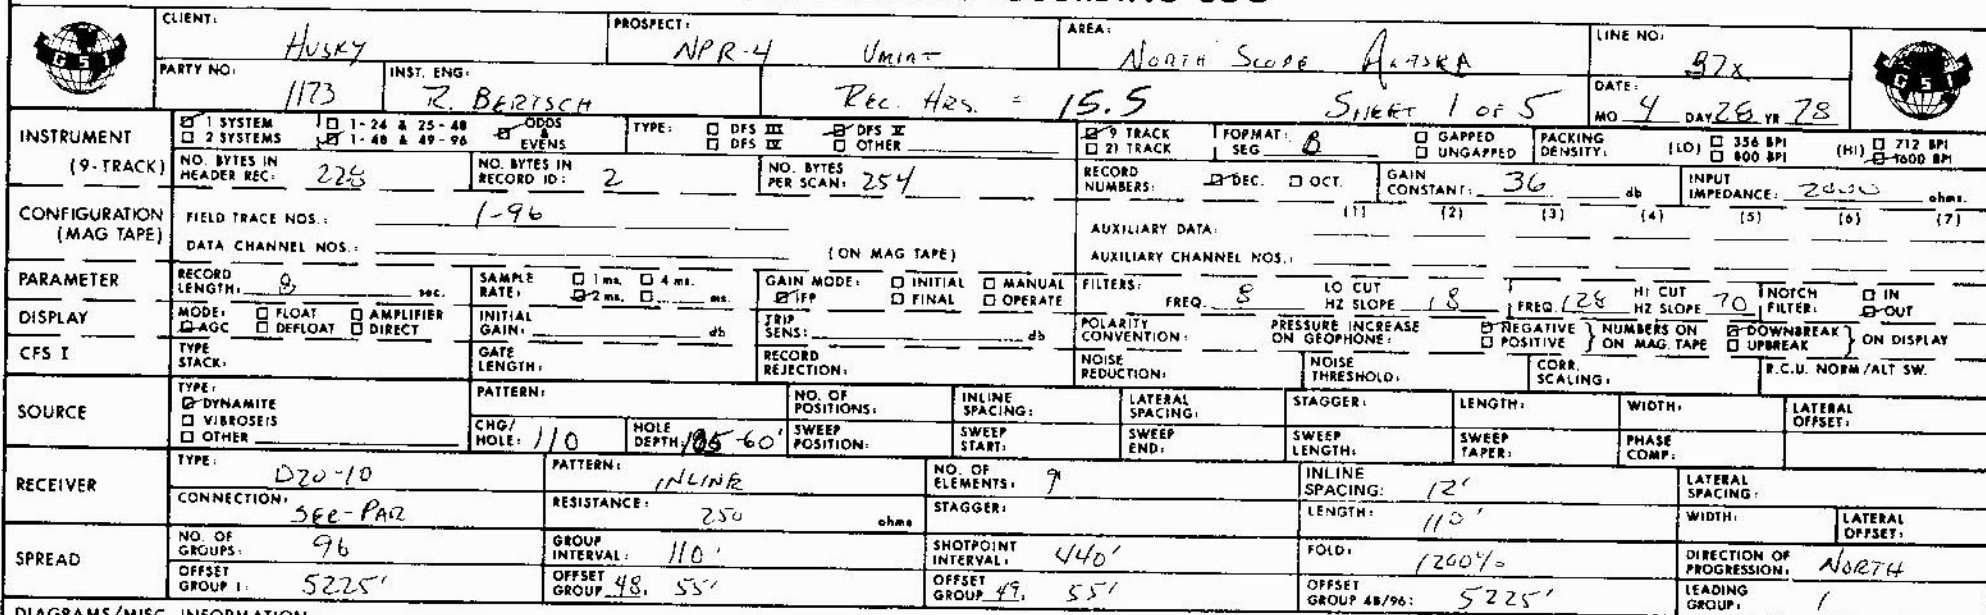 CLIENT: HUSKY PROSPECT: NPR-4 UMIAT AREA: NORTH SLOPE ALASKA LINE NO: 37x
GSI GSI
PARTY NO: 1173 INST. ENG: R. BERTSCH REC. HRS. = 15.5 SHEET 1 OF 5 DATE: MO 4 DAY 28 YR 78
INSTRUMENT 1 SYSTEM 1-24 & 25-48 ODDS & EVENS TYPE: DFS III DFS V 9 TRACK FORMAT: GAPPED PACKING (LO) 356 BPI (HI) 712 BPI
2 SYSTEMS 1-48 & 49-96 DFS IV OTHER 21 TRACK SEG B UNGAPPED DENSITY: 800 BPI 1600 BPI
(9-TRACK) NO. BYTES IN HEADER REC: 228 NO. BYTES IN RECORD ID: 2 NO. BYTES PER SCAN: 254 RECORD NUMBERS: DEC. OCT. GAIN CONSTANT: 36 db INPUT IMPEDANCE: 2000 ohms.
CONFIGURATION FIELD TRACE NOS.: 1-96 (1) (2) (3) (4) (5) (6) (7)
(MAG TAPE) AUXILIARY DATA:
DATA CHANNEL NOS.: (ON MAG TAPE) AUXILIARY CHANNEL NOS.:
PARAMETER RECORD LENGTH: 8 sec. SAMPLE RATE: 1 ms. 4 ms. 2 ms. ms. GAIN MODE: INITIAL MANUAL IFP FINAL OPERATE FILTERS: FREQ. 8 LO CUT HZ SLOPE 18 FREQ. 128 HI CUT HZ SLOPE 70 NOTCH FILTER: IN OUT
DISPLAY MODE: FLOAT AMPLIFIER AGC DEFLOAT DIRECT INITIAL GAIN: db TRIP SENS: db POLARITY CONVENTION: PRESSURE INCREASE ON GEOPHONE: NEGATIVE POSITIVE } NUMBERS ON ON MAG. TAPE DOWNBREAK UPBREAK } ON DISPLAY
CFS I TYPE STACK: GATE LENGTH: RECORD REJECTION: NOISE REDUCTION: NOISE THRESHOLD: CORR. SCALING: R.C.U. NORM/ALT SW.
SOURCE TYPE: DYNAMITE VIBROSEIS OTHER PATTERN: NO. OF POSITIONS: INLINE SPACING: LATERAL SPACING: STAGGER: LENGTH: WIDTH: LATERAL OFFSET:
CHG/HOLE: 110 HOLE DEPTH: -60' SWEEP POSITION: SWEEP START: SWEEP END: SWEEP LENGTH: SWEEP TAPER: PHASE COMP:
RECEIVER TYPE: D20-10 PATTERN: INLINE NO. OF ELEMENTS: 9 INLINE SPACING: 12' LATERAL SPACING:
CONNECTION: SER-PAR RESISTANCE: 250 ohms STAGGER: LENGTH: 110' WIDTH: LATERAL OFFSET:
SPREAD NO. OF GROUPS: 96 GROUP INTERVAL: 110' SHOTPOINT INTERVAL: 440' FOLD: 1200% DIRECTION OF PROGRESSION: NORTH
OFFSET GROUP 1: 5225' OFFSET GROUP 48: 55' OFFSET GROUP 49: 55' OFFSET GROUP 48/96: 5225' LEADING GROUP: 1
DIAGRAMS/MISC. INFORMATION